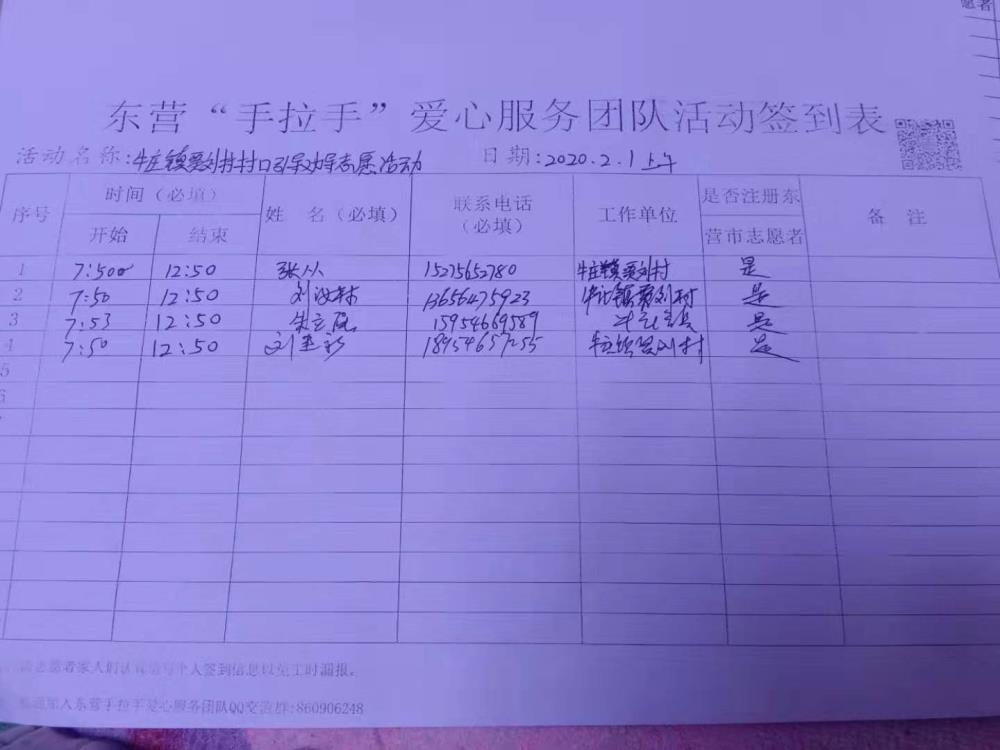 愿者
东营“手拉手”爱心服务团队活动签到表
活动名称:牛庄镇贾刘村村口引导劝导志愿活动 日期:2020.2.1上午
序号 时间（必填） 姓 名（必填） 联系电话（必填） 工作单位 是否注册东营市志愿者 备 注
开始 结束
1 7:50 12:50 张从 15275652780 牛庄镇贾刘村 是
2 7:50 12:50 刘 林 13656475923 牛庄镇贾刘村 是
3 7:53 12:50 朱 15954669589 是
4 7:50 12:50 刘 18954657255 牛庄镇贾刘村 是
5
6
志愿者家人们认真填写个人签到信息以免工时漏报。
加入东营手拉手爱心服务团队QQ交流群:860906248